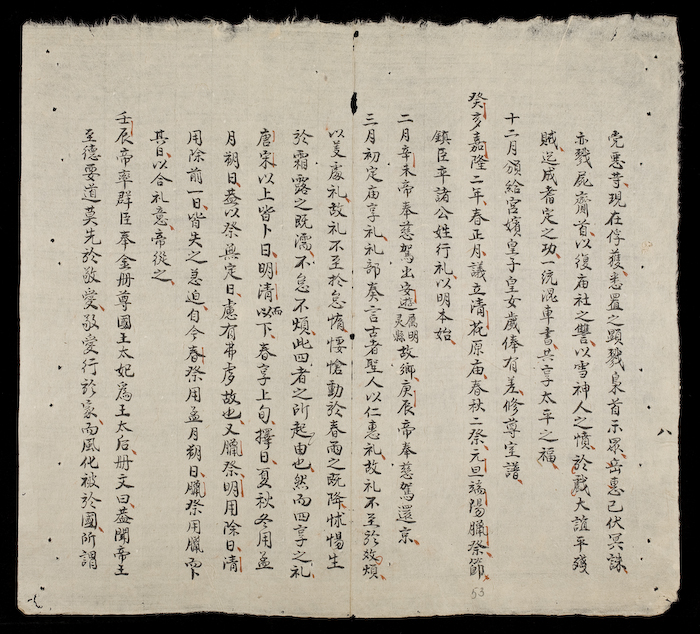 党悪等現在俘獲悉置之顕戮梟首示眾岳惠已伏冥誅
亦戮屍齊首以復庙社之讐以雪神人之憤於戲大誼平殘
賊迄成耆定之功一統混車書共享太平之福
十二月頒給宮嬪皇子皇女歲俸有差修尊室譜
癸亥嘉隆二年春正月議立清花原庙春秋二祭元旦端陽臘祭節
鎮臣率諸公姓行礼以明本始
二月辛未帝奉慈駕出安遊屬明灵縣故鄉庚辰帝奉慈駕還京
三月初定庙享礼礼部奏言古者聖人以仁惠礼故礼不至於煩
以義處礼故礼不至於怠惰悽愴動於春雨之既降怵惕生
於霜露之既濡不怠不煩此四者之所起由也然而四享之礼
唐宋以上皆卜日明清而以下春享上旬擇日夏秋冬用孟
月朔日盖以祭無定日慮有弗虔故也又臘祭明用除日清
用除前一日皆失之急迫自今春祭用孟月朔日臘祭用臘而下
其日以合礼意帝從之
壬辰帝率群臣奉金册尊國王太妃為王太后册文曰盖聞帝王
至德要道莫先於敬愛敬愛行於家而風化被於國所謂
八
53